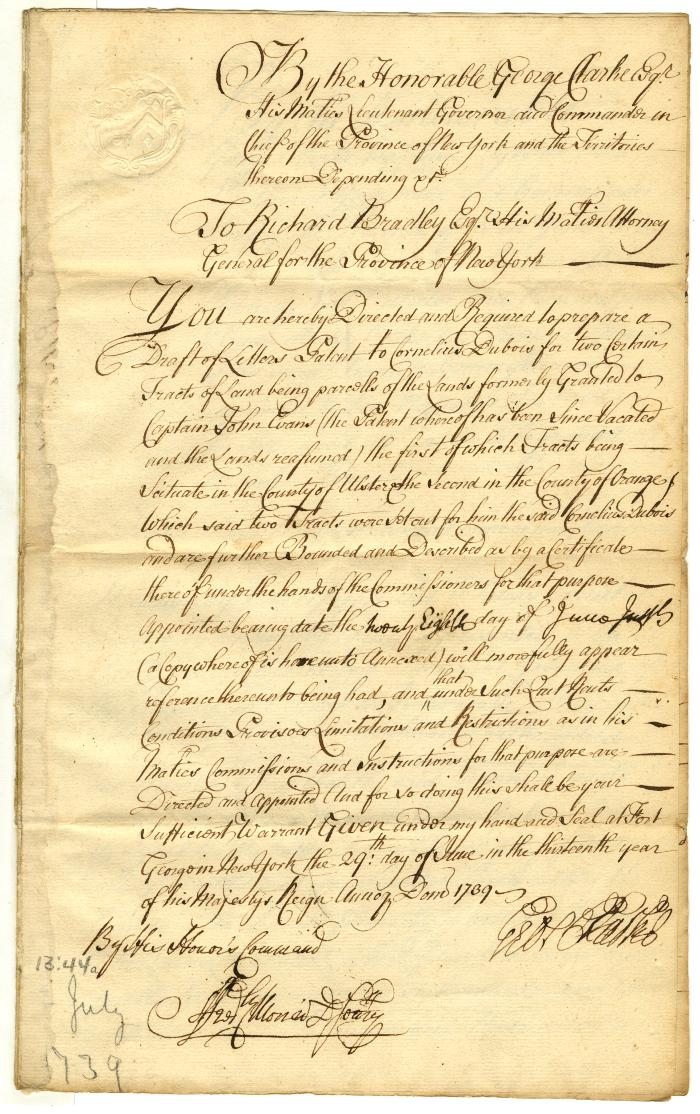 By the Honorable George Clarke Esqr.
His Maties Lieutenant Governor and Commander in
Chief of the Province of New York and the Territories
thereon Depending &c.
To Richard Bradley Esqr. His Maties Attorney
General for the Province of New York
You are hereby Directed and Required to prepare a
Draft of Letters Patent to Cornelius Dubois for two Certain
Tracts of Land being parcells of the Lands formerly Granted to
Captain John Evans (the Patent whereof has been Since Vacated
and the Lands reassumed) the first of which Tracts being
Scituate in the County of Ulster & the Second in the County of Orange
Which said two Tracts were Set out for him the said Cornelius Dubois
and are further Bounded and Described as by a Certificate
thereof under the hands of the Commissioners for that purpose
Appointed bearing date the twenty Eighth day of June
(a Copy whereof is hereunto Annexed) will more fully appear
reference thereunto being had, and that under Such Quit Rents
Conditions Provisoes Limitations and Restrictions as in his
Maties Commissions and Instructions for that purpose are
Directed and Appointed And for so doing this shall be your
Sufficient Warrant Given under my hand and Seal at Fort
George in New York the 29th. day of June in the thirteenth year
of his Majestys Reign Annoq Dom 1739
Geo Clarke
By His Honor's Command
Fred Morris D Secry
13:44a
July
1739